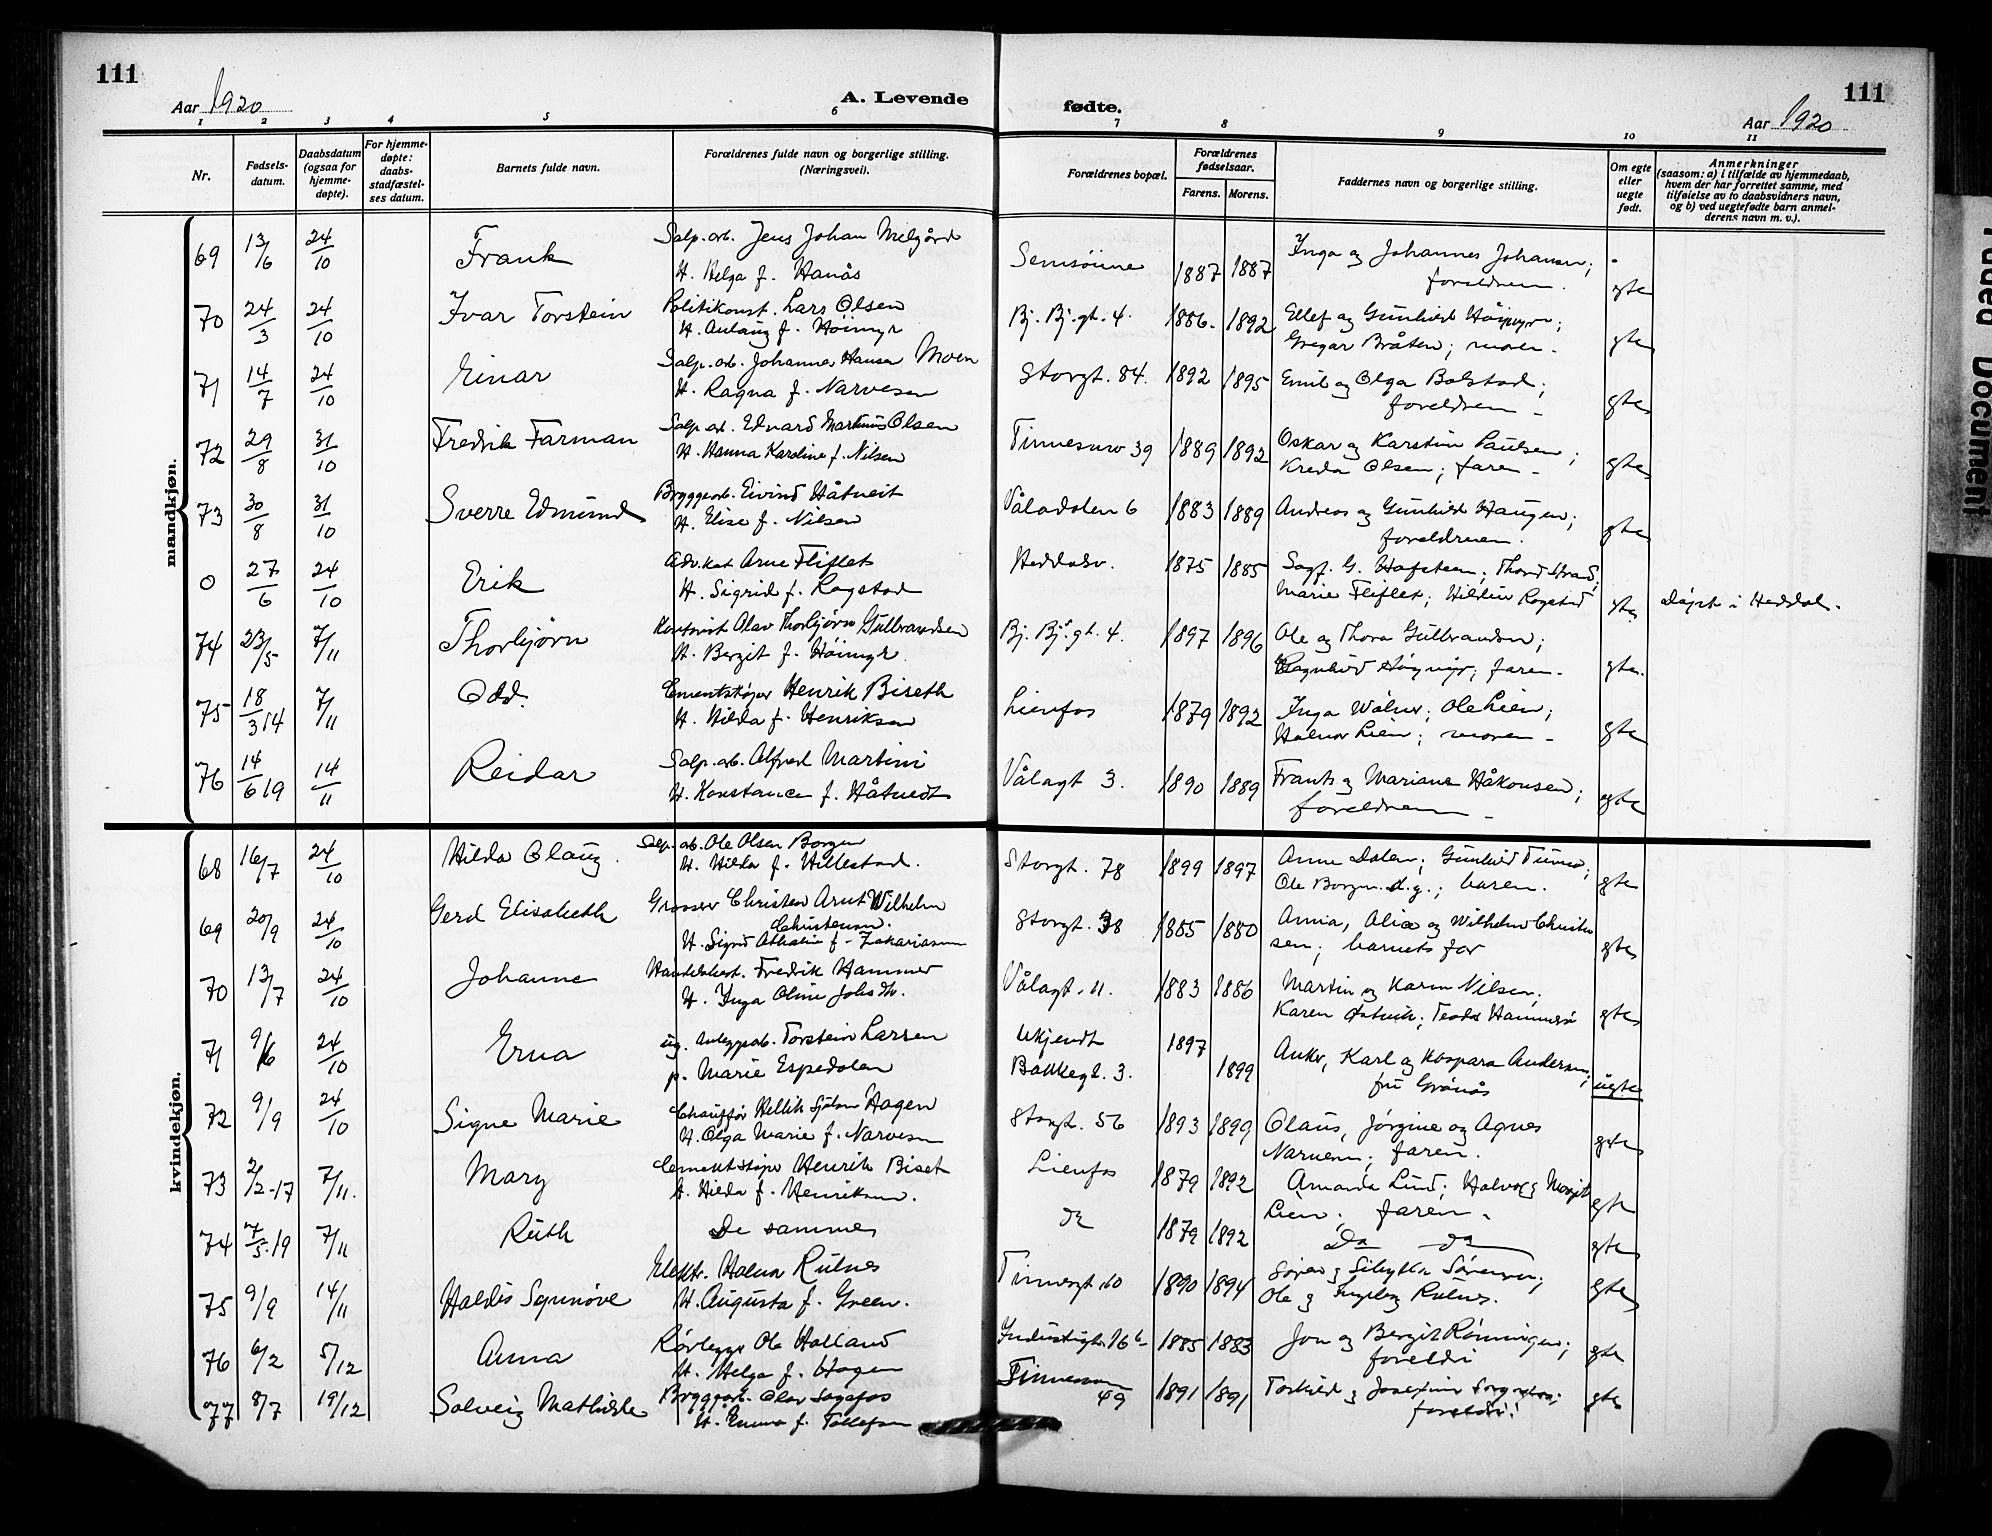 111
Aar 1920
A. Levende
fødte.
111
Aar 1920
1 2 3 4 5 6 7 8 9 10 11
Nr.
Fødsels-
datum.
Daabsdatum
(ogsaa for
hjemme-
døpte).
For hjemme-
døpte:
daabs-
stadfæstel-
ses datum.
Barnets fulde navn.
Forældrenes fulde navn og borgerlige stilling.
(Næringsvei).
Forældrenes bopæl.
Forældrenes
fødselsaar.
Farens. Morens.
Faddernes navn og borgerlige stilling.
Om egte
eller
uegte
født.
Anmerkninger
(saasom: a) i tilfælde av hjemmedaab,
hvem der har forrettet samme, med
tilføielse av to daabsvidners navn,
og b) ved uegtefødte barn anmel-
derens navn m. v.).
mandkjøn.
69 13/6 24/10 Frank Salp. arb. Jens Johan Melgård 1887 1887 Inga og Johannes Johansen;
H. Helga f. Hanås foreldrene. gte
70 24/3 24/10 Ivar Torstein Politikonst. Lars Olsen Bj. Bj. gt. 4. 1886. 1892 Ellef og Gunhild Høimyr;
H. Aslaug f. Høimyr Gregar Bråten; moren. gte
71 14/7 24/10 Einar Salp. arb. Johannes Hansen Moen Storgt. 84. 1892 1895 Emil og Olga Bolstad;
H. Ragna f. Narvesen foreldrene gte
72 29/8 31/10 Fredrik Farman Salp. arb. Edvard Martinus Olsen Tinnesmo 39 1889 1892 Oskar og Karstine Paulsen;
H. Hanna Karoline f. Nilsen Kreda Olsen; faren gte
73 30/8 31/10 Sverre Edmund Bryggearb. Eivind Håtveit Våladalen 6 1883 1889 Andreas og Gunhild Haugen;
H. Elise f. Nilsen foreldrene. gte
0 27/6 24/10 Erik Advokat Arne Fliflet Heddalsv. 1875 1885 Sagf. G. Hofsteen; Thord Strand;
H. Sigrid f. Rogstad Marie Fliflet; Rogstad gte Døpt i Heddal.
74 23/5 7/11 Thorbjørn Kontorist Olav Thorbjørn Gulbrandsen Bj. Bj. gt. 4. 1897 1896 Ole og Thora Gulbrandsen;
H. Bergit f. Høimyr Ragnhild Høymyr; faren. gte.
75 18/3 14 7/11 Odd. Cementstøper Henrik Biseth Lienfos 1879 1892 Inga; Ole Lien;
H. Hilda f. Henriksen Halvor Lien; moren gte
76 14/6 19 14/11 Reidar Salp. arb. Alfred Martini Vålagt 3. 1890 1889 Frants og Mariane Håkonsen;
H. Konstance f. Håtvedt foreldrene egte
kvindekjøn.
68 16/7 24/10 Hilda Olaug. Salp. arb. Ole Olsen Borgen Storgt. 78 1899 1897 Anne Dalen; Gunhild;
H. Hilda f. Hillestad. Ole Borgen d.y.; faren. gte
69 20/9 24/10 Gerd Elisabeth Grosserer Christen Arnt Wilhelm Storgt. 38 1885 1880 Anna, Alice og Wilhelm Christen
Christensen.
H. Sigrid Athalie f. Zakariassen sen; barnets far gte
70 13/7 24/10 Johanne Handelsbest. Fredrik Hammer Vålagt. 11. 1883 1886 Martin og Karen Nilsen;
H. Inga Oline Karen; Hammer gte
71 9/6 24/10 Erna ug. anleggsarb. Torstein Larsen Ukjendt 1897 Anker, Karl og Kaspara Andersen;
p. Marie Espedalen Bakkegt. 3. 1899 fru Grånås uegte
72 9/9 24/10 Signe Marie Chauffør Hagen Storgt. 56 1893 1899 Olaus, Jørgine og Agnes
H. Olga Marie f. Narvesen Narvesen; faren. gte
73 2/2-17 7/11. Mary Cementstøper Henrik Biset Lienfos 1879 1892 Amanda Lund; Halvor og Margit
H. Hilda f. Henriksen. Lien; faren. gte
74 7/5-19 7/11 Ruth De samme do 1879 1892 Do do gte
75 9/9 14/11 Haldis Synnøve Elektr. Halvor Rulnes Tinnegt. 10 1890 1894 Søren og Sibylla Sørensen;
H. Augusta f. Green. Ole og Ingeborg Rulnes. gte
76 6/2 5/12 Anna Rørlegger Ole Halland Industrigt. 16 b 1885 1883 Jon og Bergit Rønningen;
H. Helga f. Hagen foreldri gte
77 8/7 19/12 Solveig Mathilde Bryggearb. Olav Sagafos 49 1891 1891 Torkild og Josefine;
H. Emma f. Tollefsen foreldri! gte